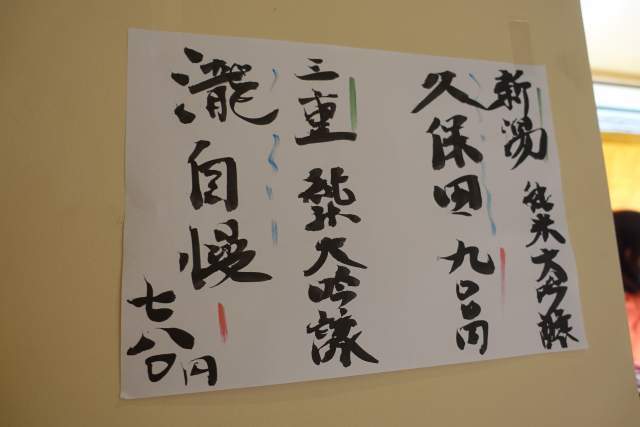 新潟 純米大吟醸
久保田 九〇〇円
三重 純米大吟醸
瀧自慢
七八〇円